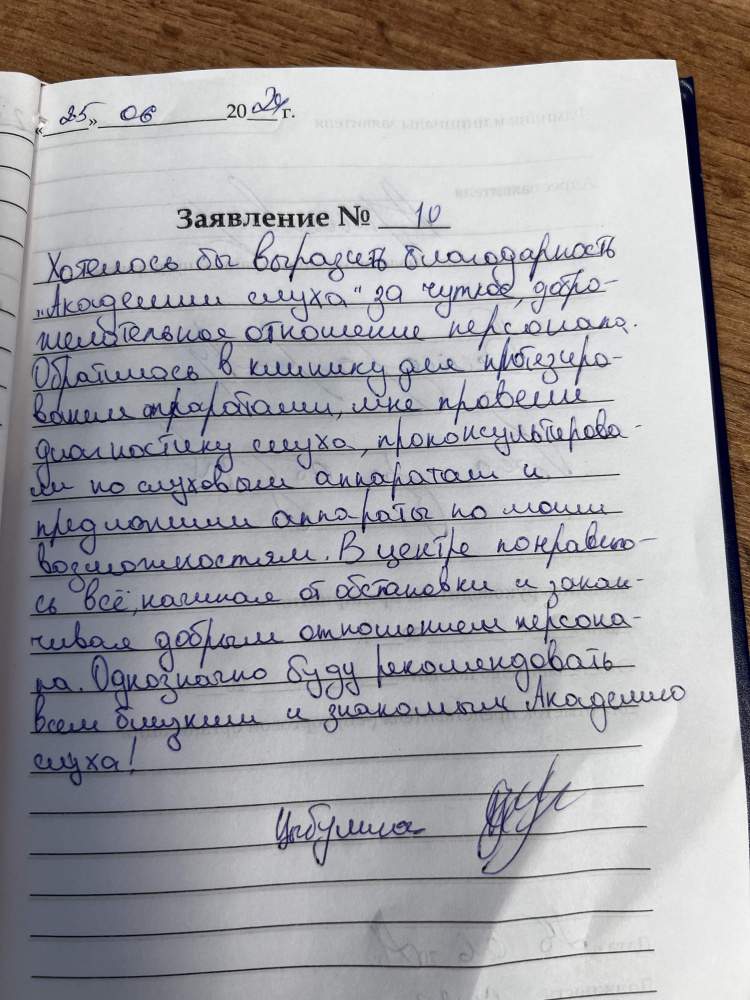 «25» 06 2024 г.
Заявление № 10
Хотелось бы выразить благодарность
„Академии слуха" за чуткое, добро-
желательное отношение персонала.
Обратилась в клинику для протезиро-
вания аппаратами, мне провели
диагностику слуха, проконсультирова-
ли по слуховым аппаратам и
предложили аппараты по моим
возможностям. В центре понравило-
сь всё, начиная от обстановки и закан-
чивая добрым отношением персона-
ла. Однозначно буду рекомендовать
всем близким и знакомым Академию
слуха!
Цыбулина